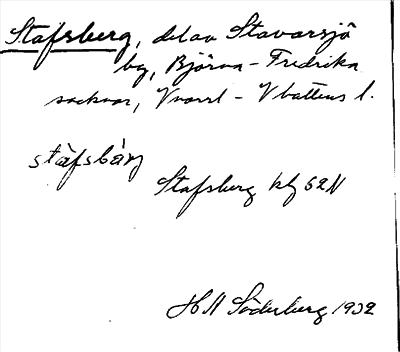 Stafsberg, del av Stavarsjö
by, Björna-Fredrika
socknar, Vnorrl-Vbottens l.
stáfsbärj
Stafsberg kbg 62N
H N Söderberg 1932